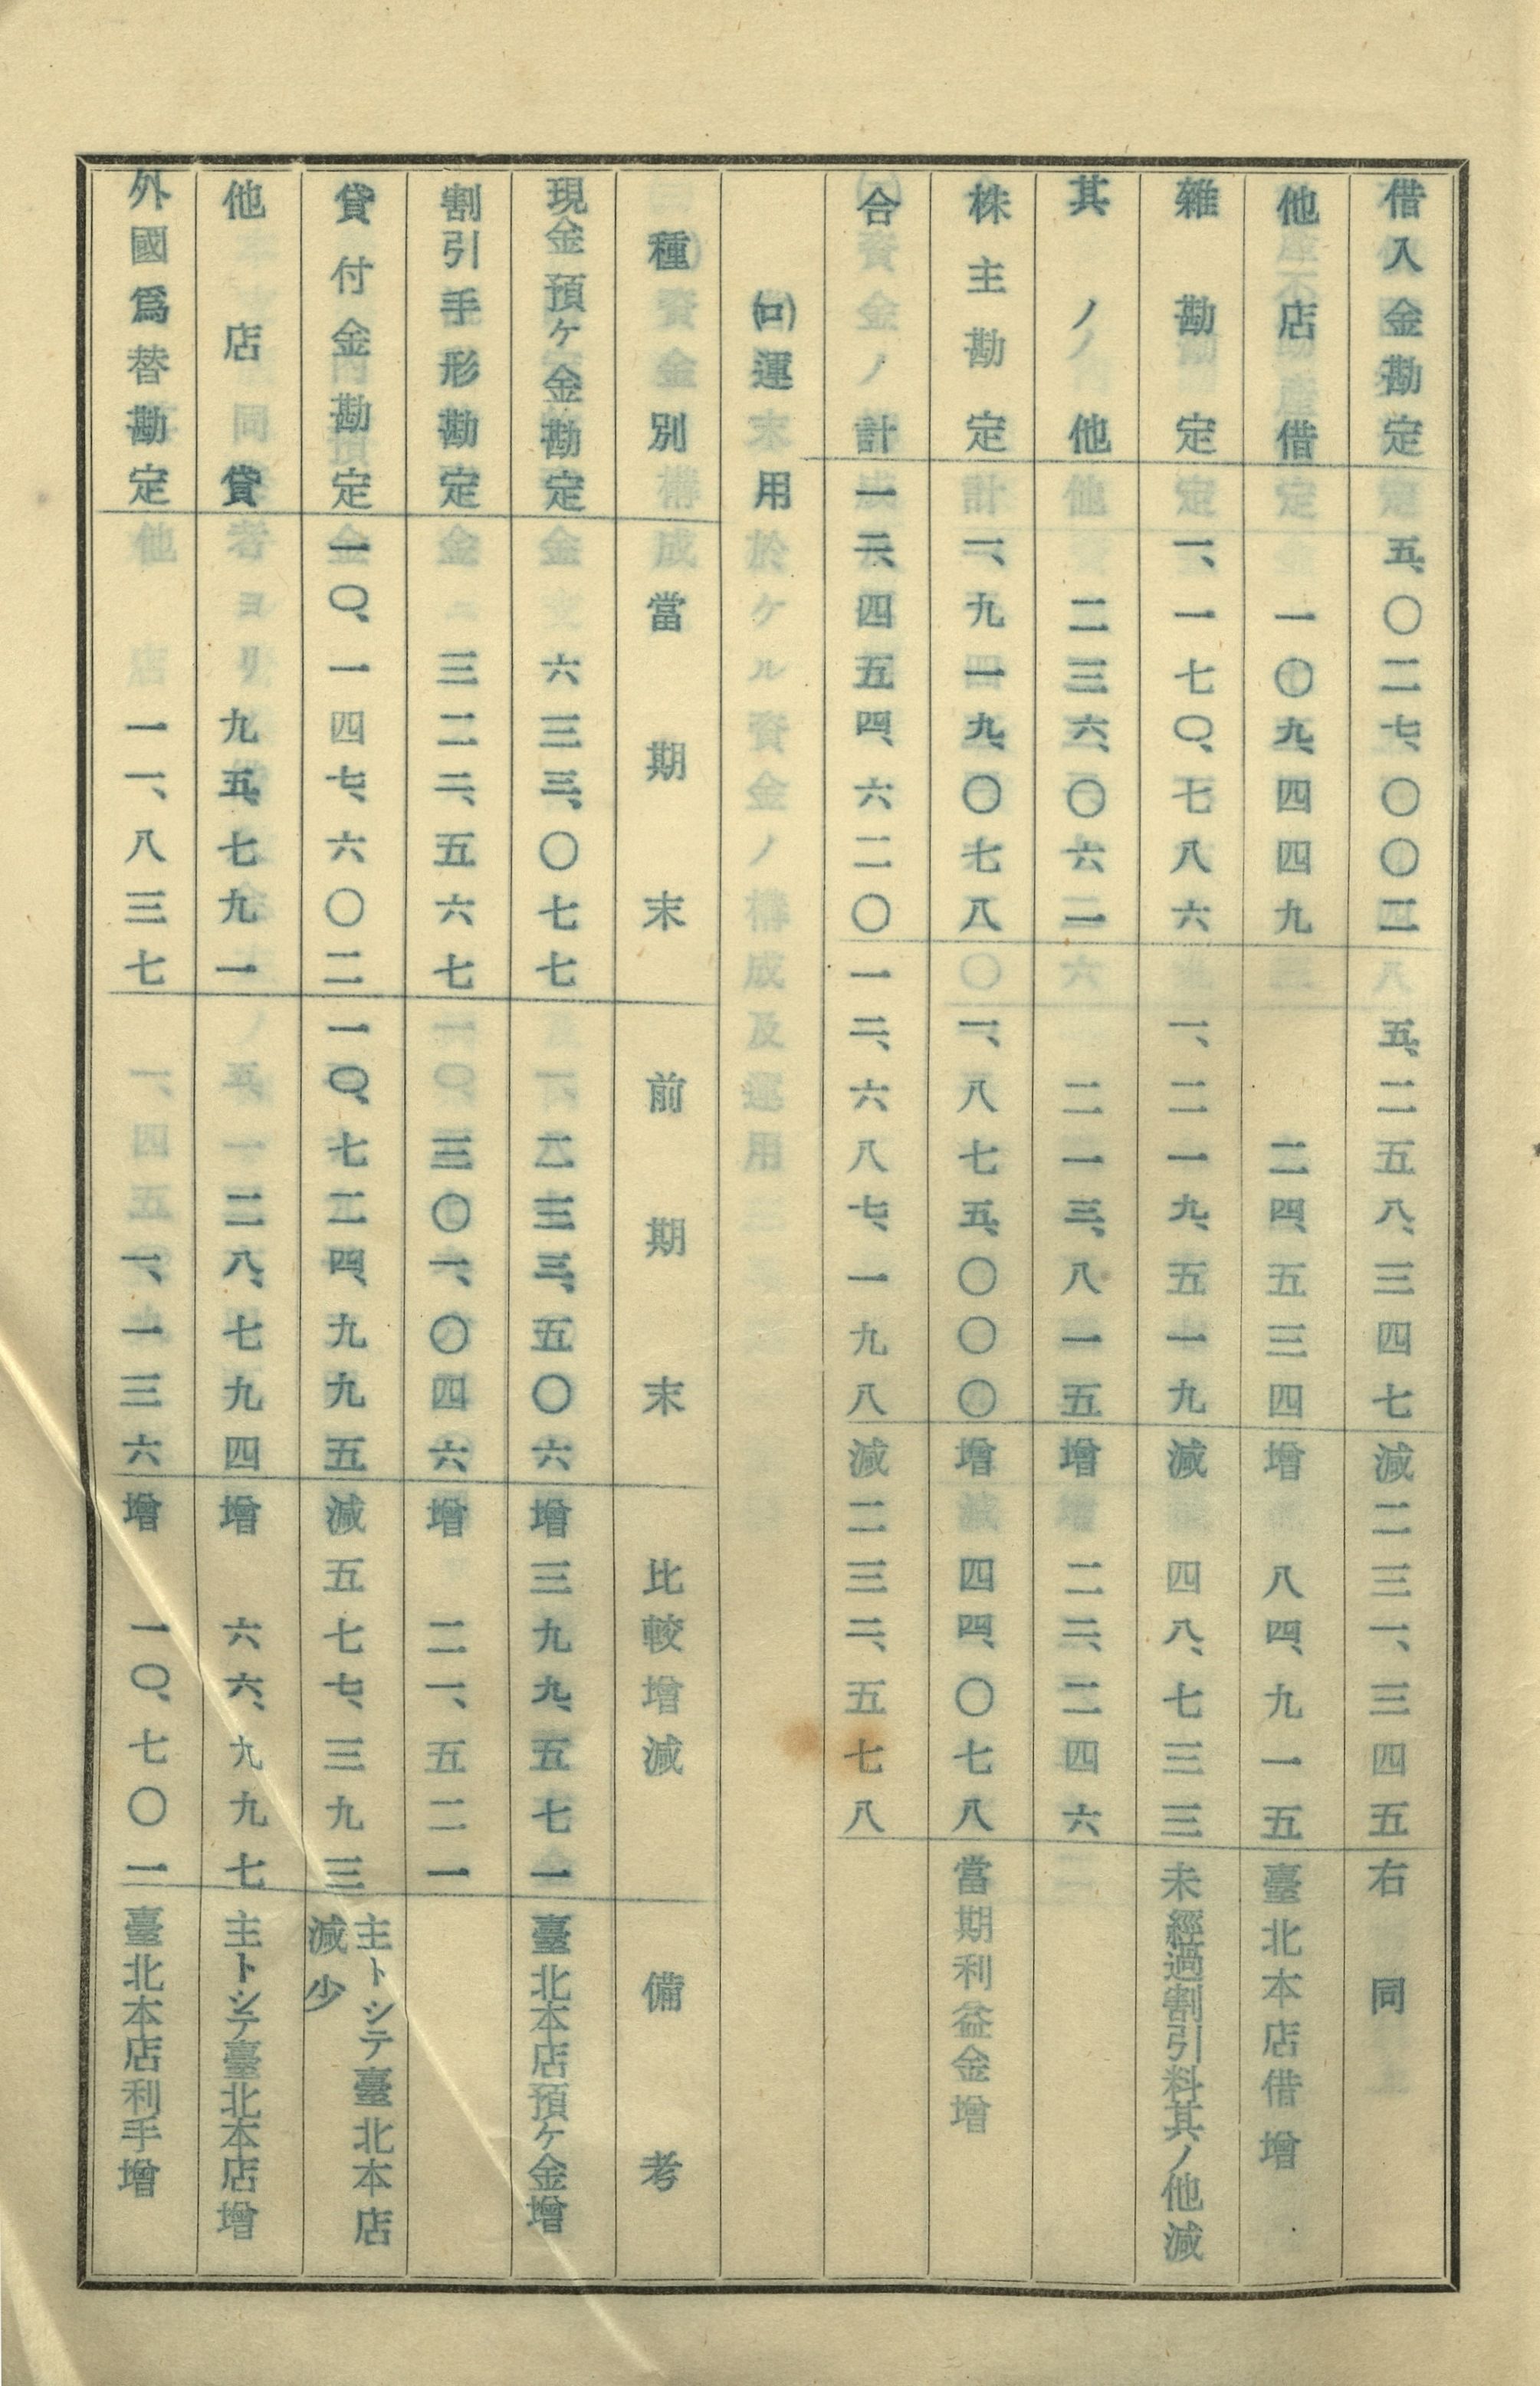 借入金勘定 五、〇二七、〇〇二 五、二五八、三四七 減 二三一、三四五 右同
他店借 一〇九、四四九 二四、五三四 增 八四、九一五 臺北本店借增
雜勘定 一、一七〇、七八六 一、二一九、五一九 減 四八、七三三 未經過割引料其ノ他減
其ノ他 二三六、〇六一 二一三、八一五 增 二二、二四六
株主勘定 一、九一九、〇七八 一、八七五、〇〇〇 增 四四、〇七八 當期利益金增
合計 一二、四五四、六二〇 一二、六八七、一九八 減 二三二、五七八
(ロ)運用
種別 當期末 前期末 比較增減 備考
現金預ケ金勘定 六三三、〇七七 二三三、五〇六 增 三九九、五七一 臺北本店預ケ金增
割引手形勘定 三二二、五六七 三〇一、〇四六 增 二一、五二一
貸付金勘定 一〇、一四七、六〇二 一〇、七二四、九九五 減 五七七、三九三 主トシテ臺北本店
減少
他店貸 九五、七九一 二八、七九四 增 六六、九九七 主トシテ臺北本店增
外國爲替勘定 一一、八三七 一、一三六 增 一〇、七〇一 臺北本店利手增